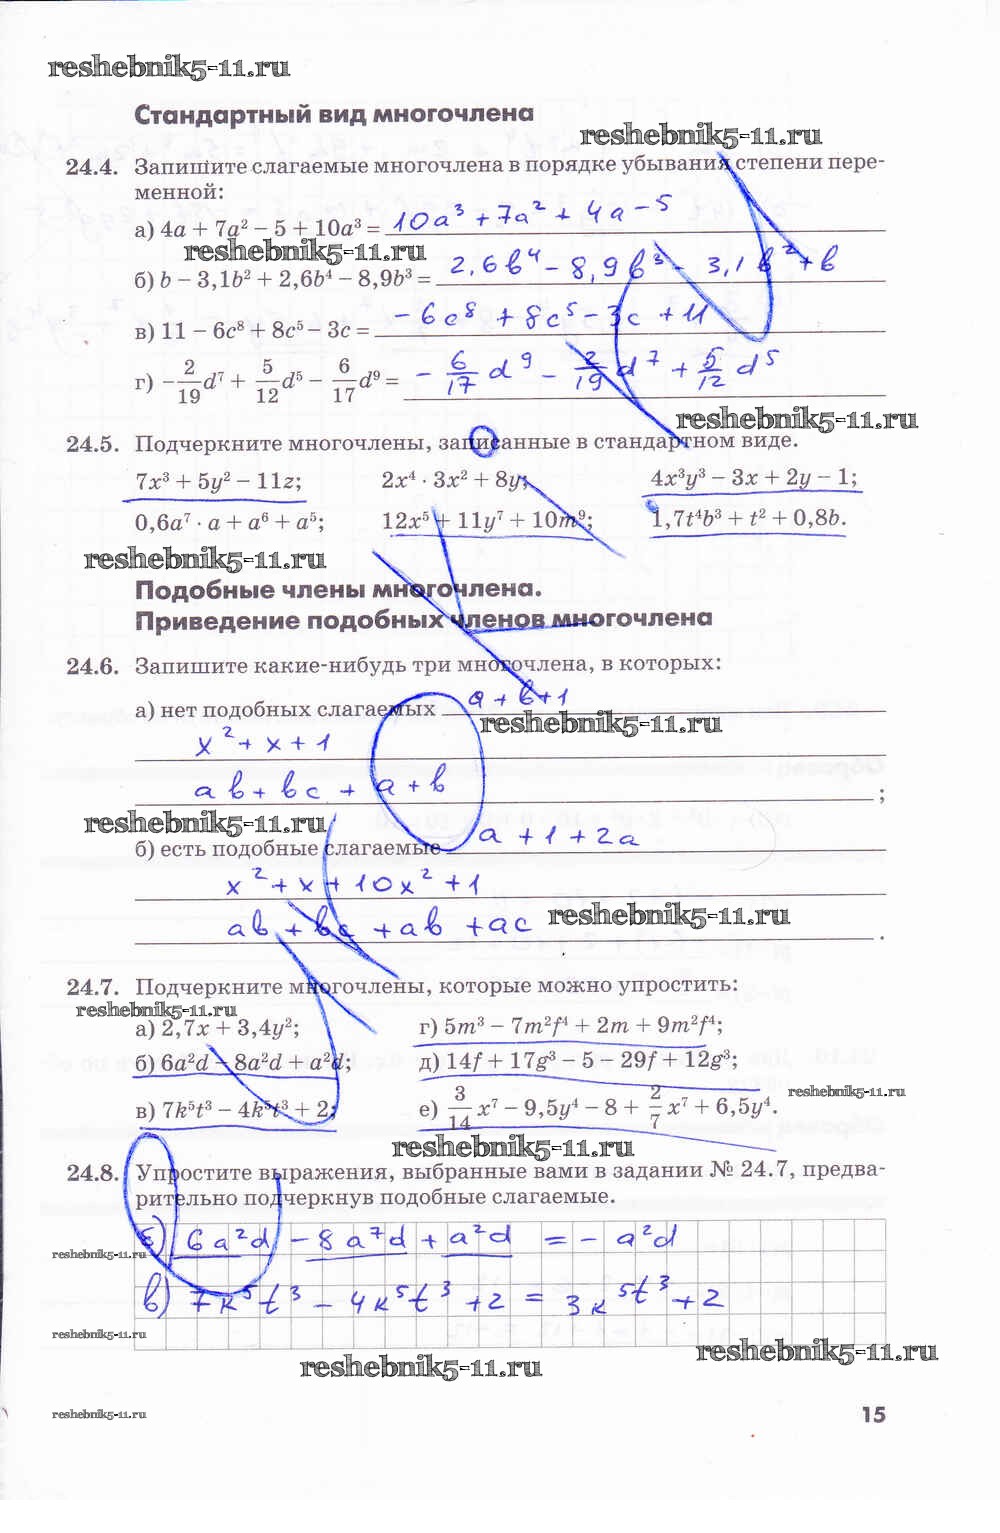 reshebnik5-11.ru
Стандартный вид многочлена
reshebnik5-11.ru
24.4. Запишите слагаемые многочлена в порядке убывания степени пере-
менной:
а) 4a + 7a² − 5 + 10a³ = 10a³ + 7a² + 4a − 5
reshebnik5-11.ru
б) b − 3,1b² + 2,6b⁴ − 8,9b³ = 2,6b⁴ − 8,9b³ − 3,1b² + b
в) 11 − 6c⁸ + 8c⁵ − 3c = −6c⁸ + 8c⁵ − 3c + 11
г) −2/19 d⁷ + 5/12 d⁵ − 6/17 d⁹ = −6/17 d⁹ − 2/19 d⁷ + 5/12 d⁵
reshebnik5-11.ru
24.5. Подчеркните многочлены, записанные в стандартном виде.
7x³ + 5y² − 11z; 2x⁴ · 3x² + 8y; 4x³y³ − 3x + 2y − 1;
0,6a⁷ · a + a⁶ + a⁵; 12x⁵ + 11y⁷ + 10m⁹; 1,7t⁴b³ + t² + 0,8b.
reshebnik5-11.ru
Подобные члены многочлена.
Приведение подобных членов многочлена
24.6. Запишите какие-нибудь три многочлена, в которых:
а) нет подобных слагаемых a + b + 1
reshebnik5-11.ru
x² + x + 1
ab + bc + a + b ;
reshebnik5-11.ru
б) есть подобные слагаемые a + 1 + 2a
x² + x + 10x² + 1
reshebnik5-11.ru
ab + bc + ab + ac .
24.7. Подчеркните многочлены, которые можно упростить:
reshebnik5-11.ru
а) 2,7x + 3,4y²; г) 5m³ − 7m²f⁴ + 2m + 9m²f⁴;
б) 6a²d − 8a²d + a²d; д) 14f + 17g³ − 5 − 29f + 12g³;
reshebnik5-11.ru
в) 7k⁵t³ − 4k⁵t³ + 2; е) 3/14 x⁷ − 9,5y⁴ − 8 + 2/7 x⁷ + 6,5y⁴.
reshebnik5-11.ru
24.8. Упростите выражения, выбранные вами в задании № 24.7, предва-
рительно подчеркнув подобные слагаемые.
б) 6a²d − 8a²d + a²d = − a²d
reshebnik5-11.ru
в) 7k⁵t³ − 4k⁵t³ + 2 = 3k⁵t³ + 2
reshebnik5-11.ru
reshebnik5-11.ru
reshebnik5-11.ru
reshebnik5-11.ru
15